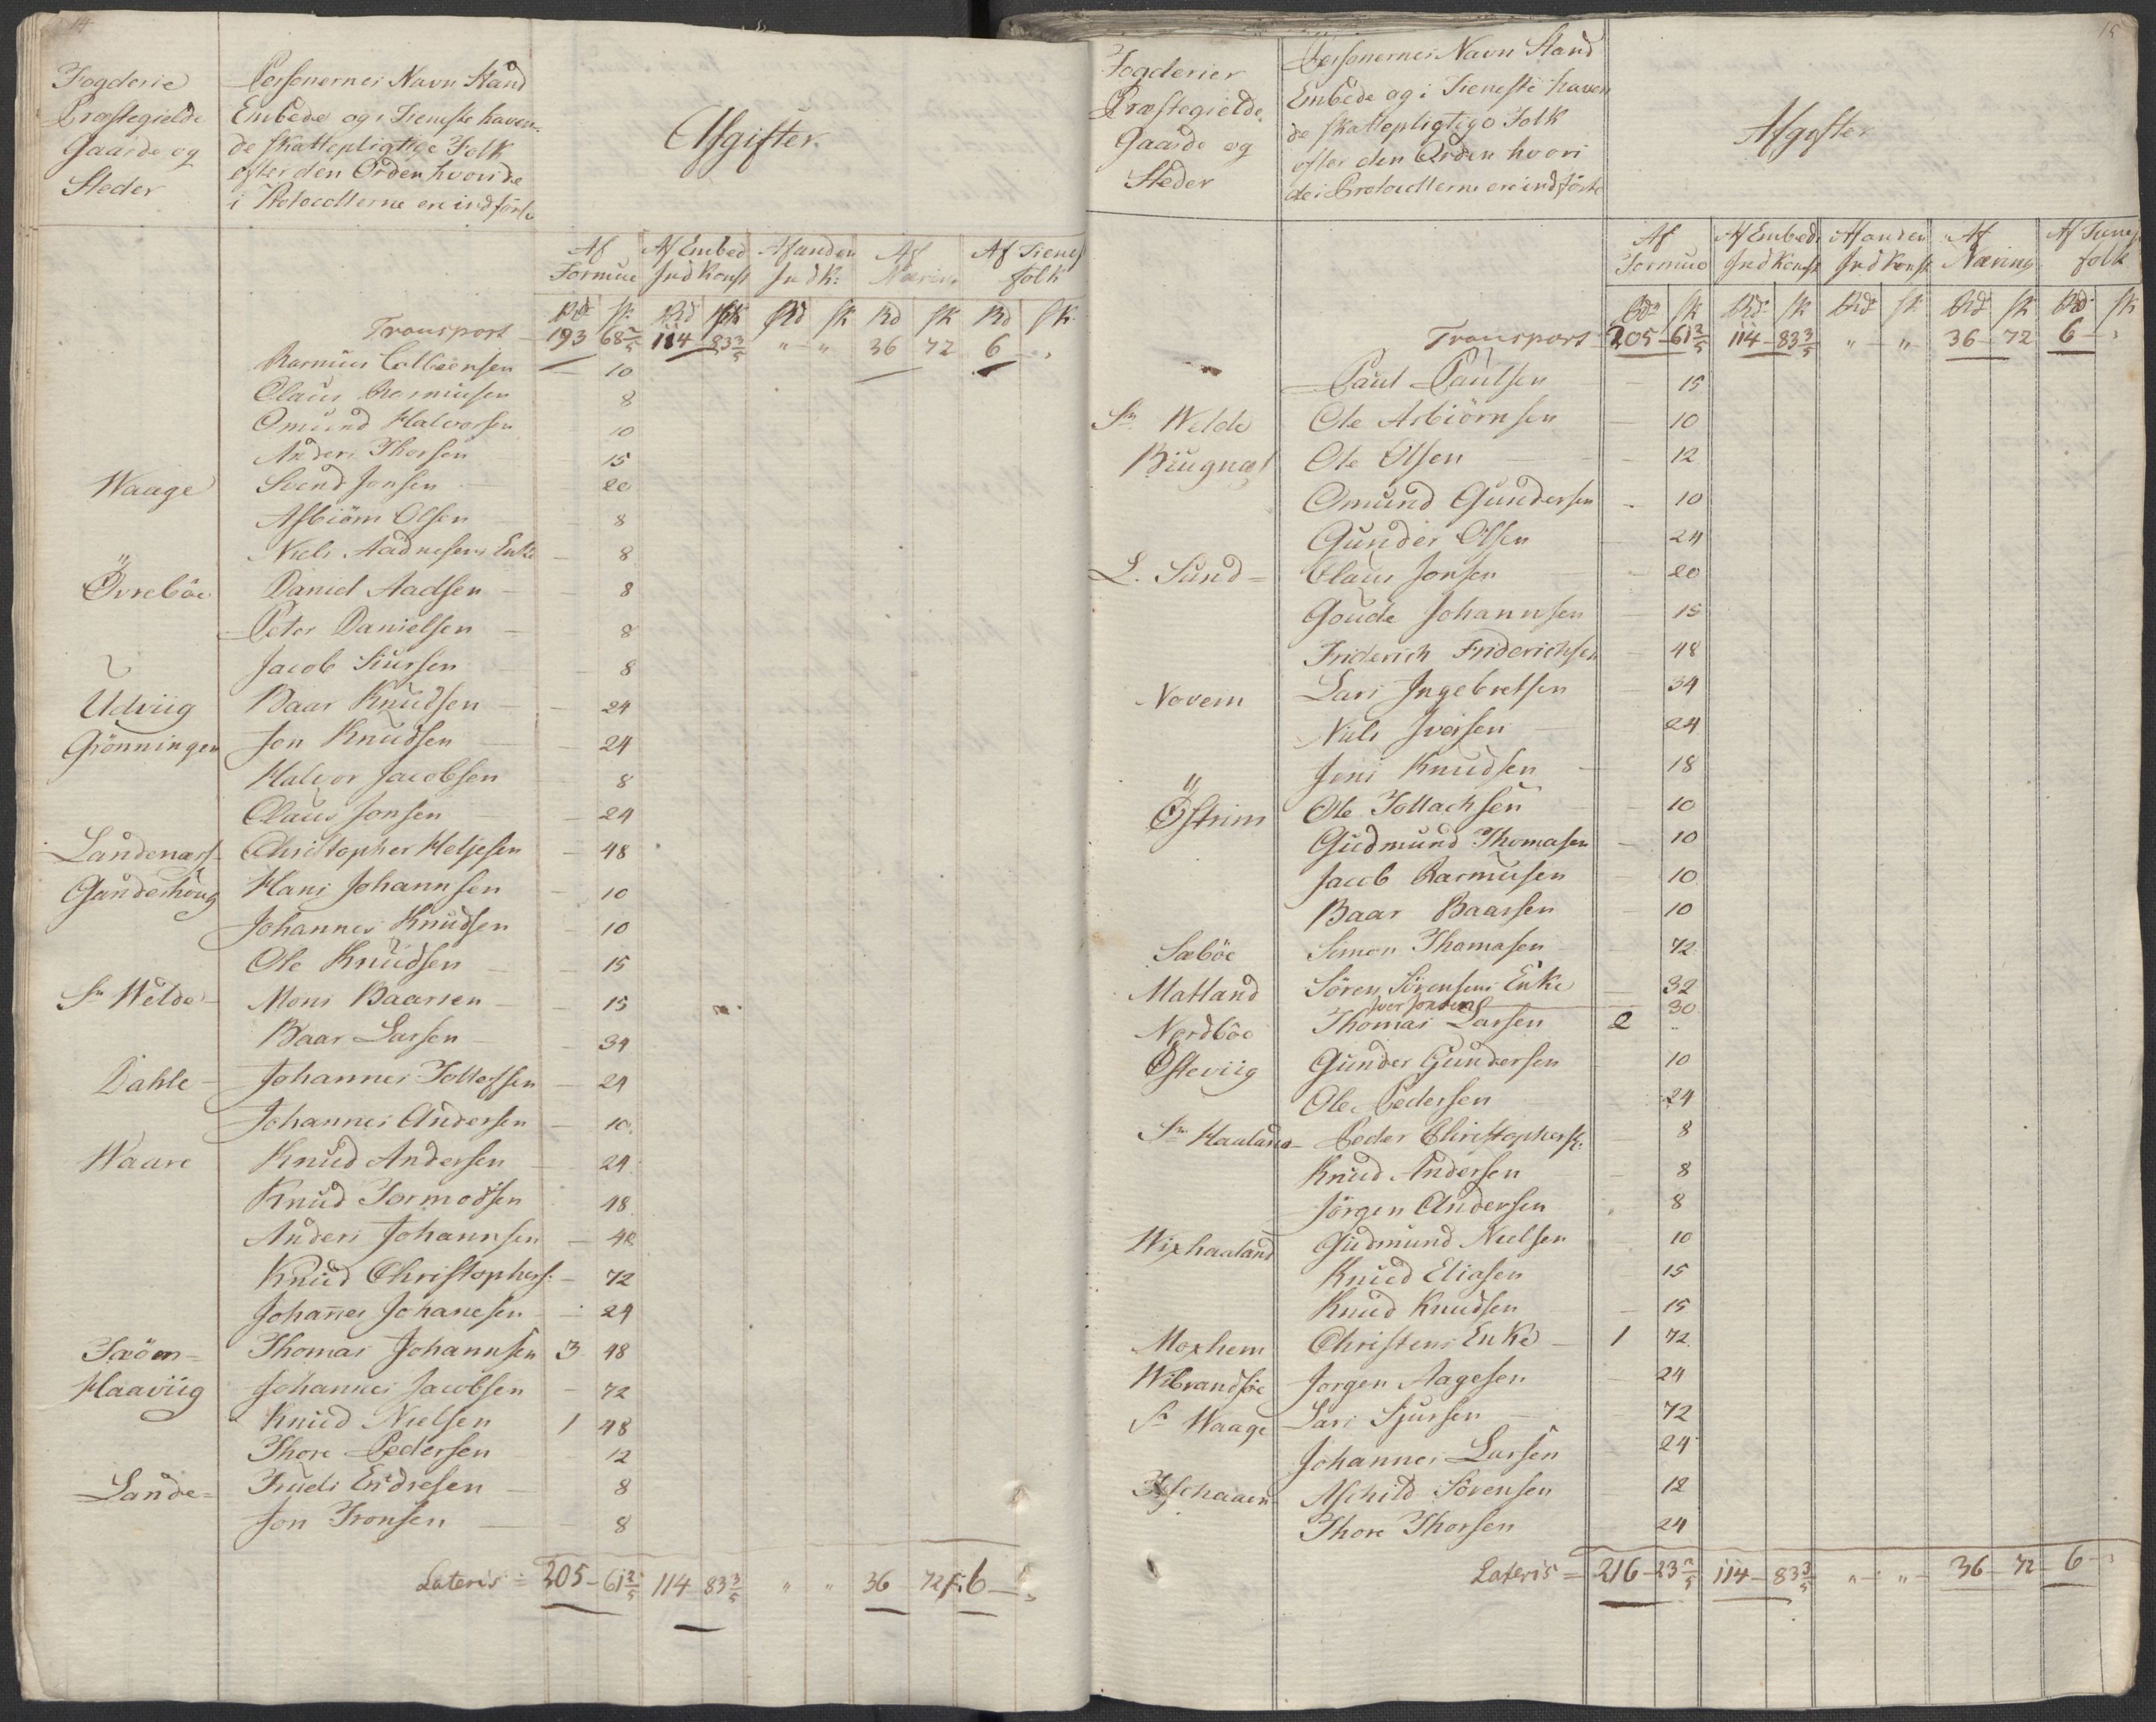 14
Fogderie
Præstegielde
Gaarde og
Steder
Personernes Navn Stand
Embede og i Tieneste haven-
de skattepligtige Folk
efter den Orden hvori de
i Protocollerne ere indførte
Afgifter.
Af Formue Af Embed Indkomst Af anden Indk: Af Næring Af Tienest folk
Rd sk Rd sk Rd sk Rd sk Rd sk
Transport 193 68 2/5 114 83 3/5 " " 36 72 6 "
Rasmus Colbiensen 10
Claus Rasmusen 8
Omund Halvorsen 10
Anders Thorsen 15
Waage Svend Jonsen 20
Asbiörn Olsen 8
Niels Aadnesens Enke 8
Övreböe Daniel Aadsen 8
Peter Danielsen 8
Jacob Siursen 8
Udviig Baar Knudsen 24
Grönningen Jon Knudsen 24
Halvor Jacobsen 8
Claus Jonsen 24
Landenæss Christopher Heljesen 48
Gunderhoug Hans Johannsen 10
Johannes Knudsen 10
Ole Knudsen 15
Sr Welde Mons Baarsen 15
Baar Larsen 34
Dahle Johannes Tollefsen 24
Johannes Andersen 10
Waare Knud Andersen 24
Knud Tormodsen 48
Anders Johannsen 48
Knud Christophers: 72
Johanes Johanesen 24
Fæöen Thomas Johannsen 3 48
Haaviig Johannes Jacobsen 72
Knud Nielsen 1 48
Thore Pedersen 12
Lande Truels Endresen 8
Jon Tronsen 8
Lateris 205 61 2/5 114 83 3/5 " " 36 72 6 "
15
Fogderier
Præstegielde
Gaarde og
Steder
Personernes Navn Stand
Embede og i Tieneste haven
de skattepligtige Folk
efter den Orden hvori
de i Protocollerne ere indförte
Afgifter
Af Formue Af Embed Indkomst Af anden Indkomst Af Næring Af Tienest folk
Rdr sk Rdr sk Rdr sk Rdr sk Rdr sk
Transport 205 61 2/5 114 83 3/5 " " 36 72 6 "
Paul Paulsen 15
Sr Welde Ole Asbiörnsen 10
Biugnæs Ole Olsen 12
Omund Gundersen 10
Gunder Olsen 24
L. Sund Claus Jonsen 20
Goude Johannsen 15
Friderich Friderichsen 48
Novem Lars Ingebretsen 34
Niels Iversen 24
Jens Knudsen 18
Östrim Ole Tollachsen 10
Gudmund Thomasen 10
Jacob Rasmusen 10
Baar Baarsen 10
Sæböe Simon Thomasen 72
Matland Sören Sörensens Enke 32
Iver Jonsen 30
Nordböe Thomas Larsen 2 "
Osteviig Gunder Gundersen 10
Ole Pedersen 24
Sr Haaland Peder Christophers: 8
Knud Andersen 8
Jörgen Andersen 8
Wixhaaland Gudmund Nielsen 10
Knud Eliasen 15
Knud Knudsen 15
Moxhem Christens Enke 1 72
Wibrandsöe Jorgen Aagesen 24
Sr Waage Lars Sjursen 72
Johannes Larsen 24
Aschild Sörensen 12
Thore Thorsen 24
Lateris 216 23 2/5 114 83 3/5 " " 36 72 6 "